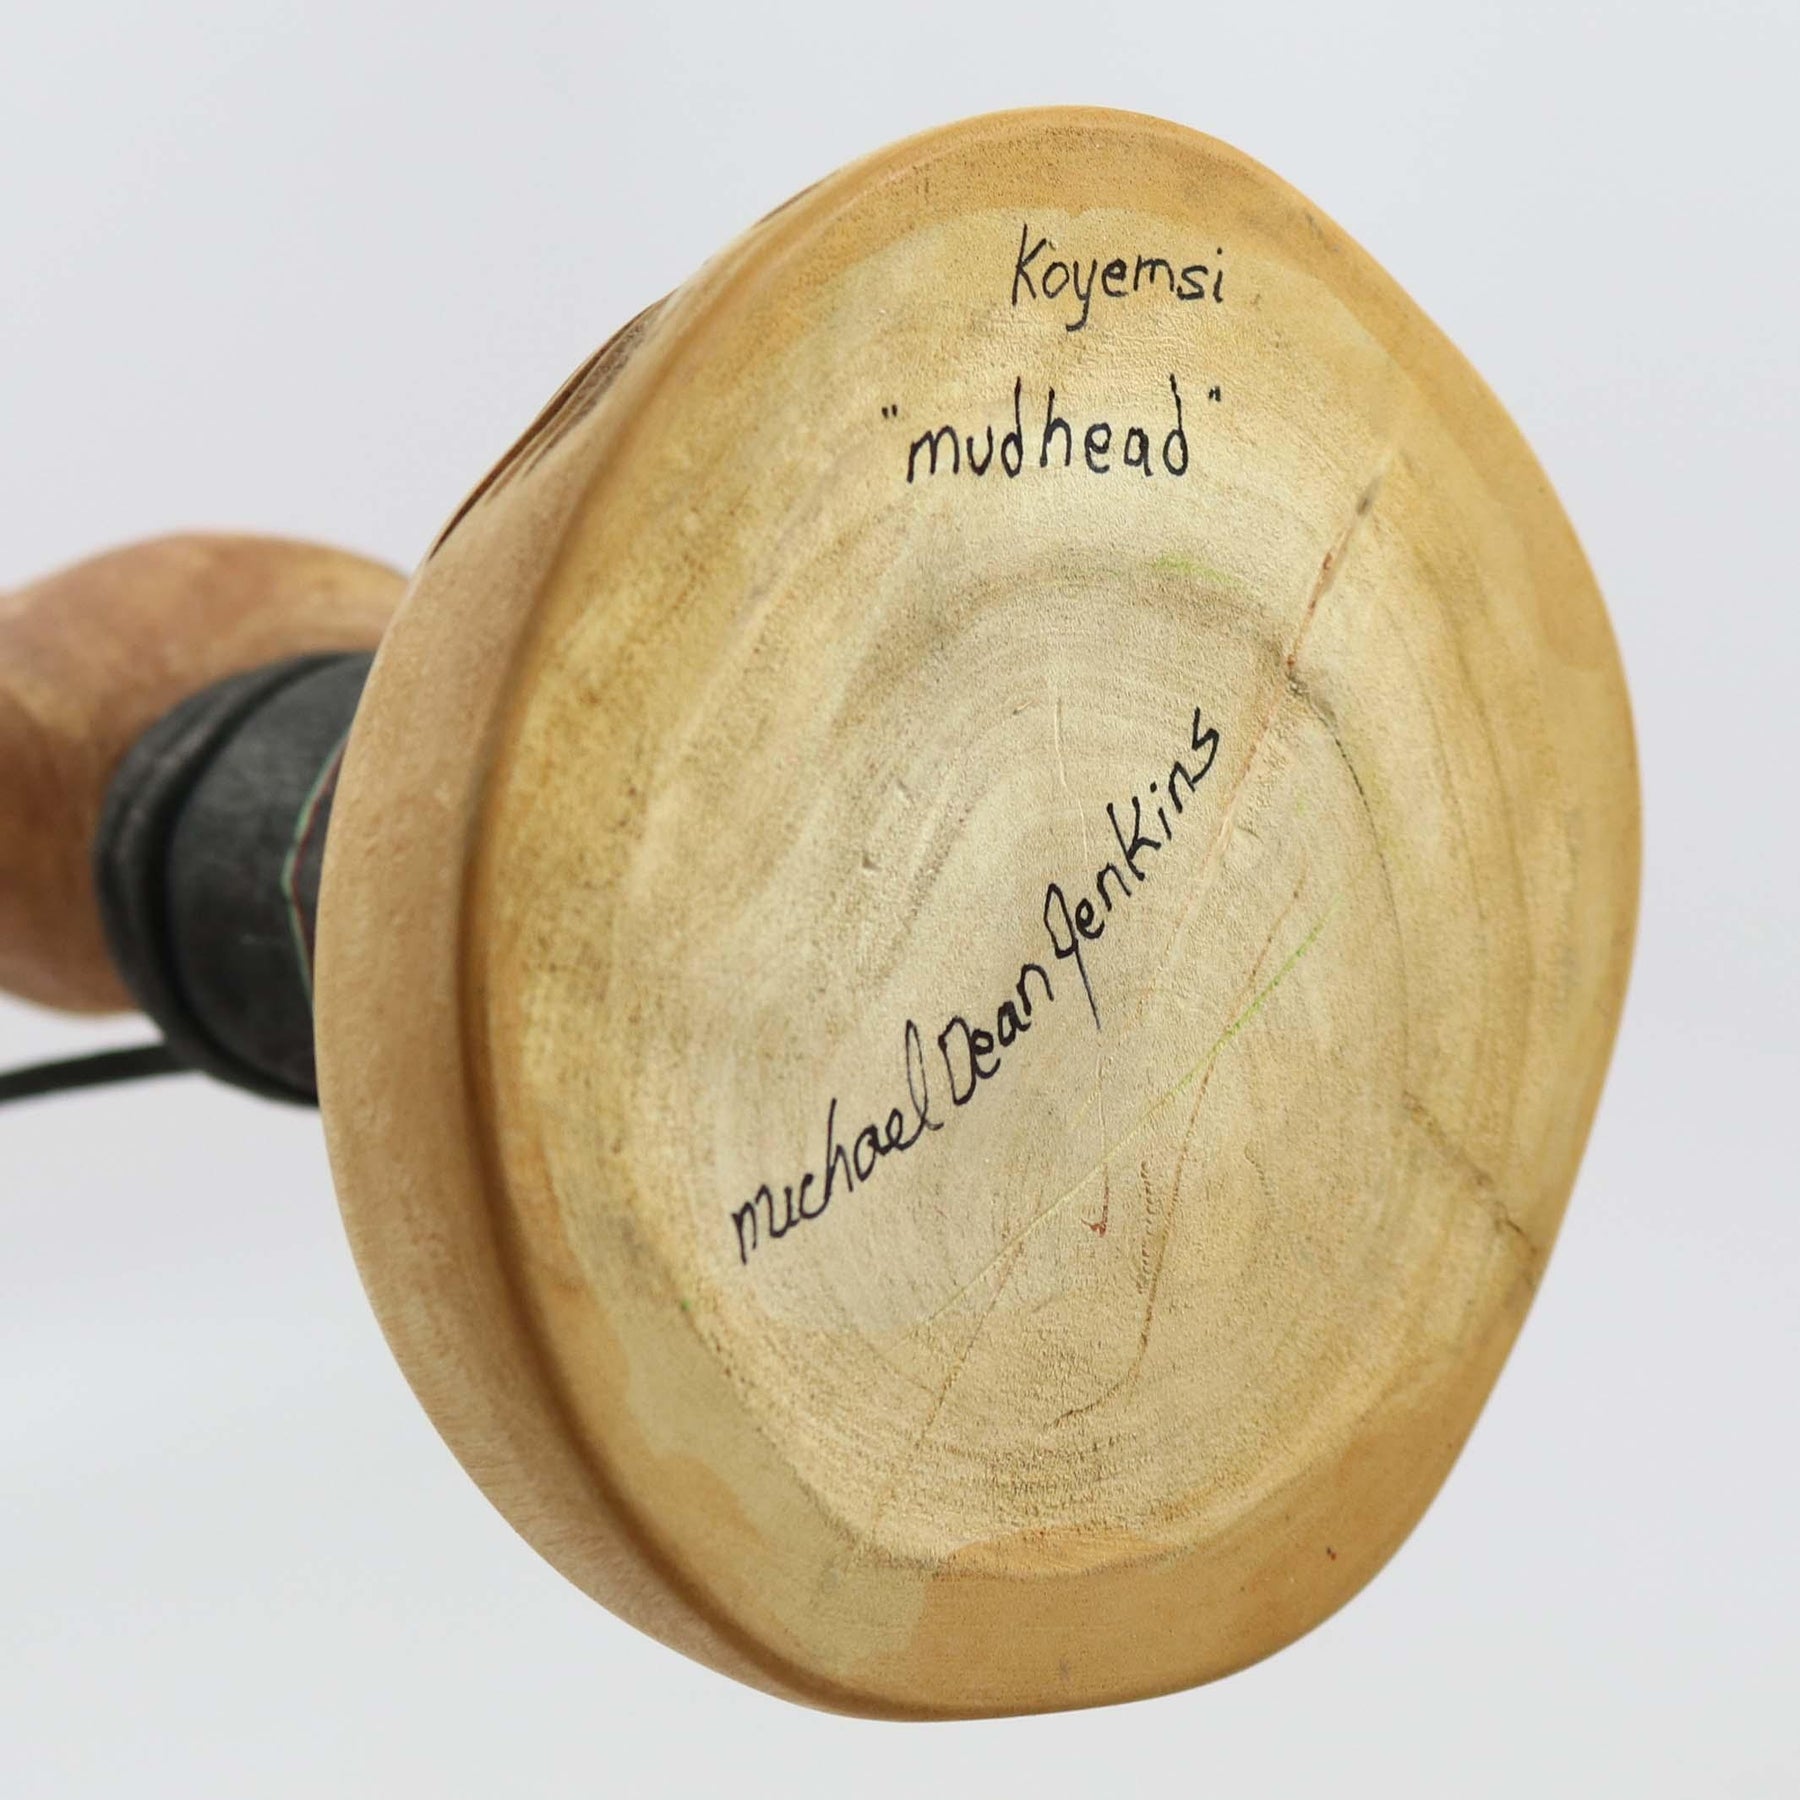 Koyemsi
"mudhead"
Michael Dean Jenkins